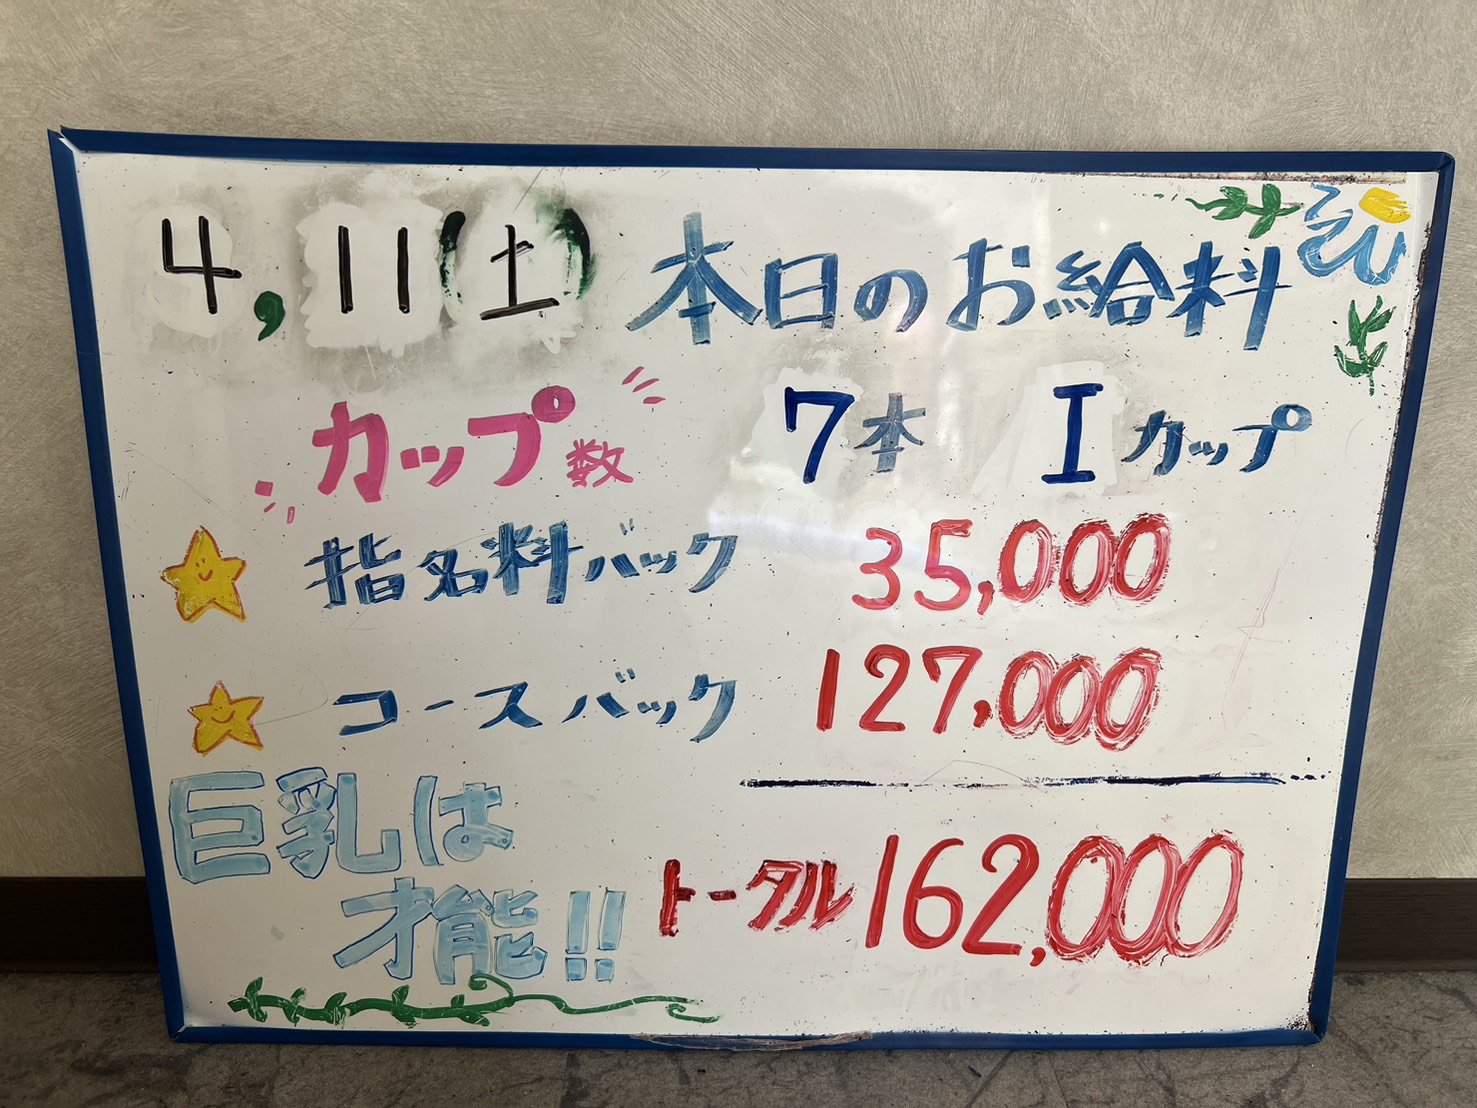 4,11(土) 本日のお給料
カップ数 7本 Iカップ
指名料バック 35,000
コースバック 127,000
巨乳は
才能!! トータル 162,000